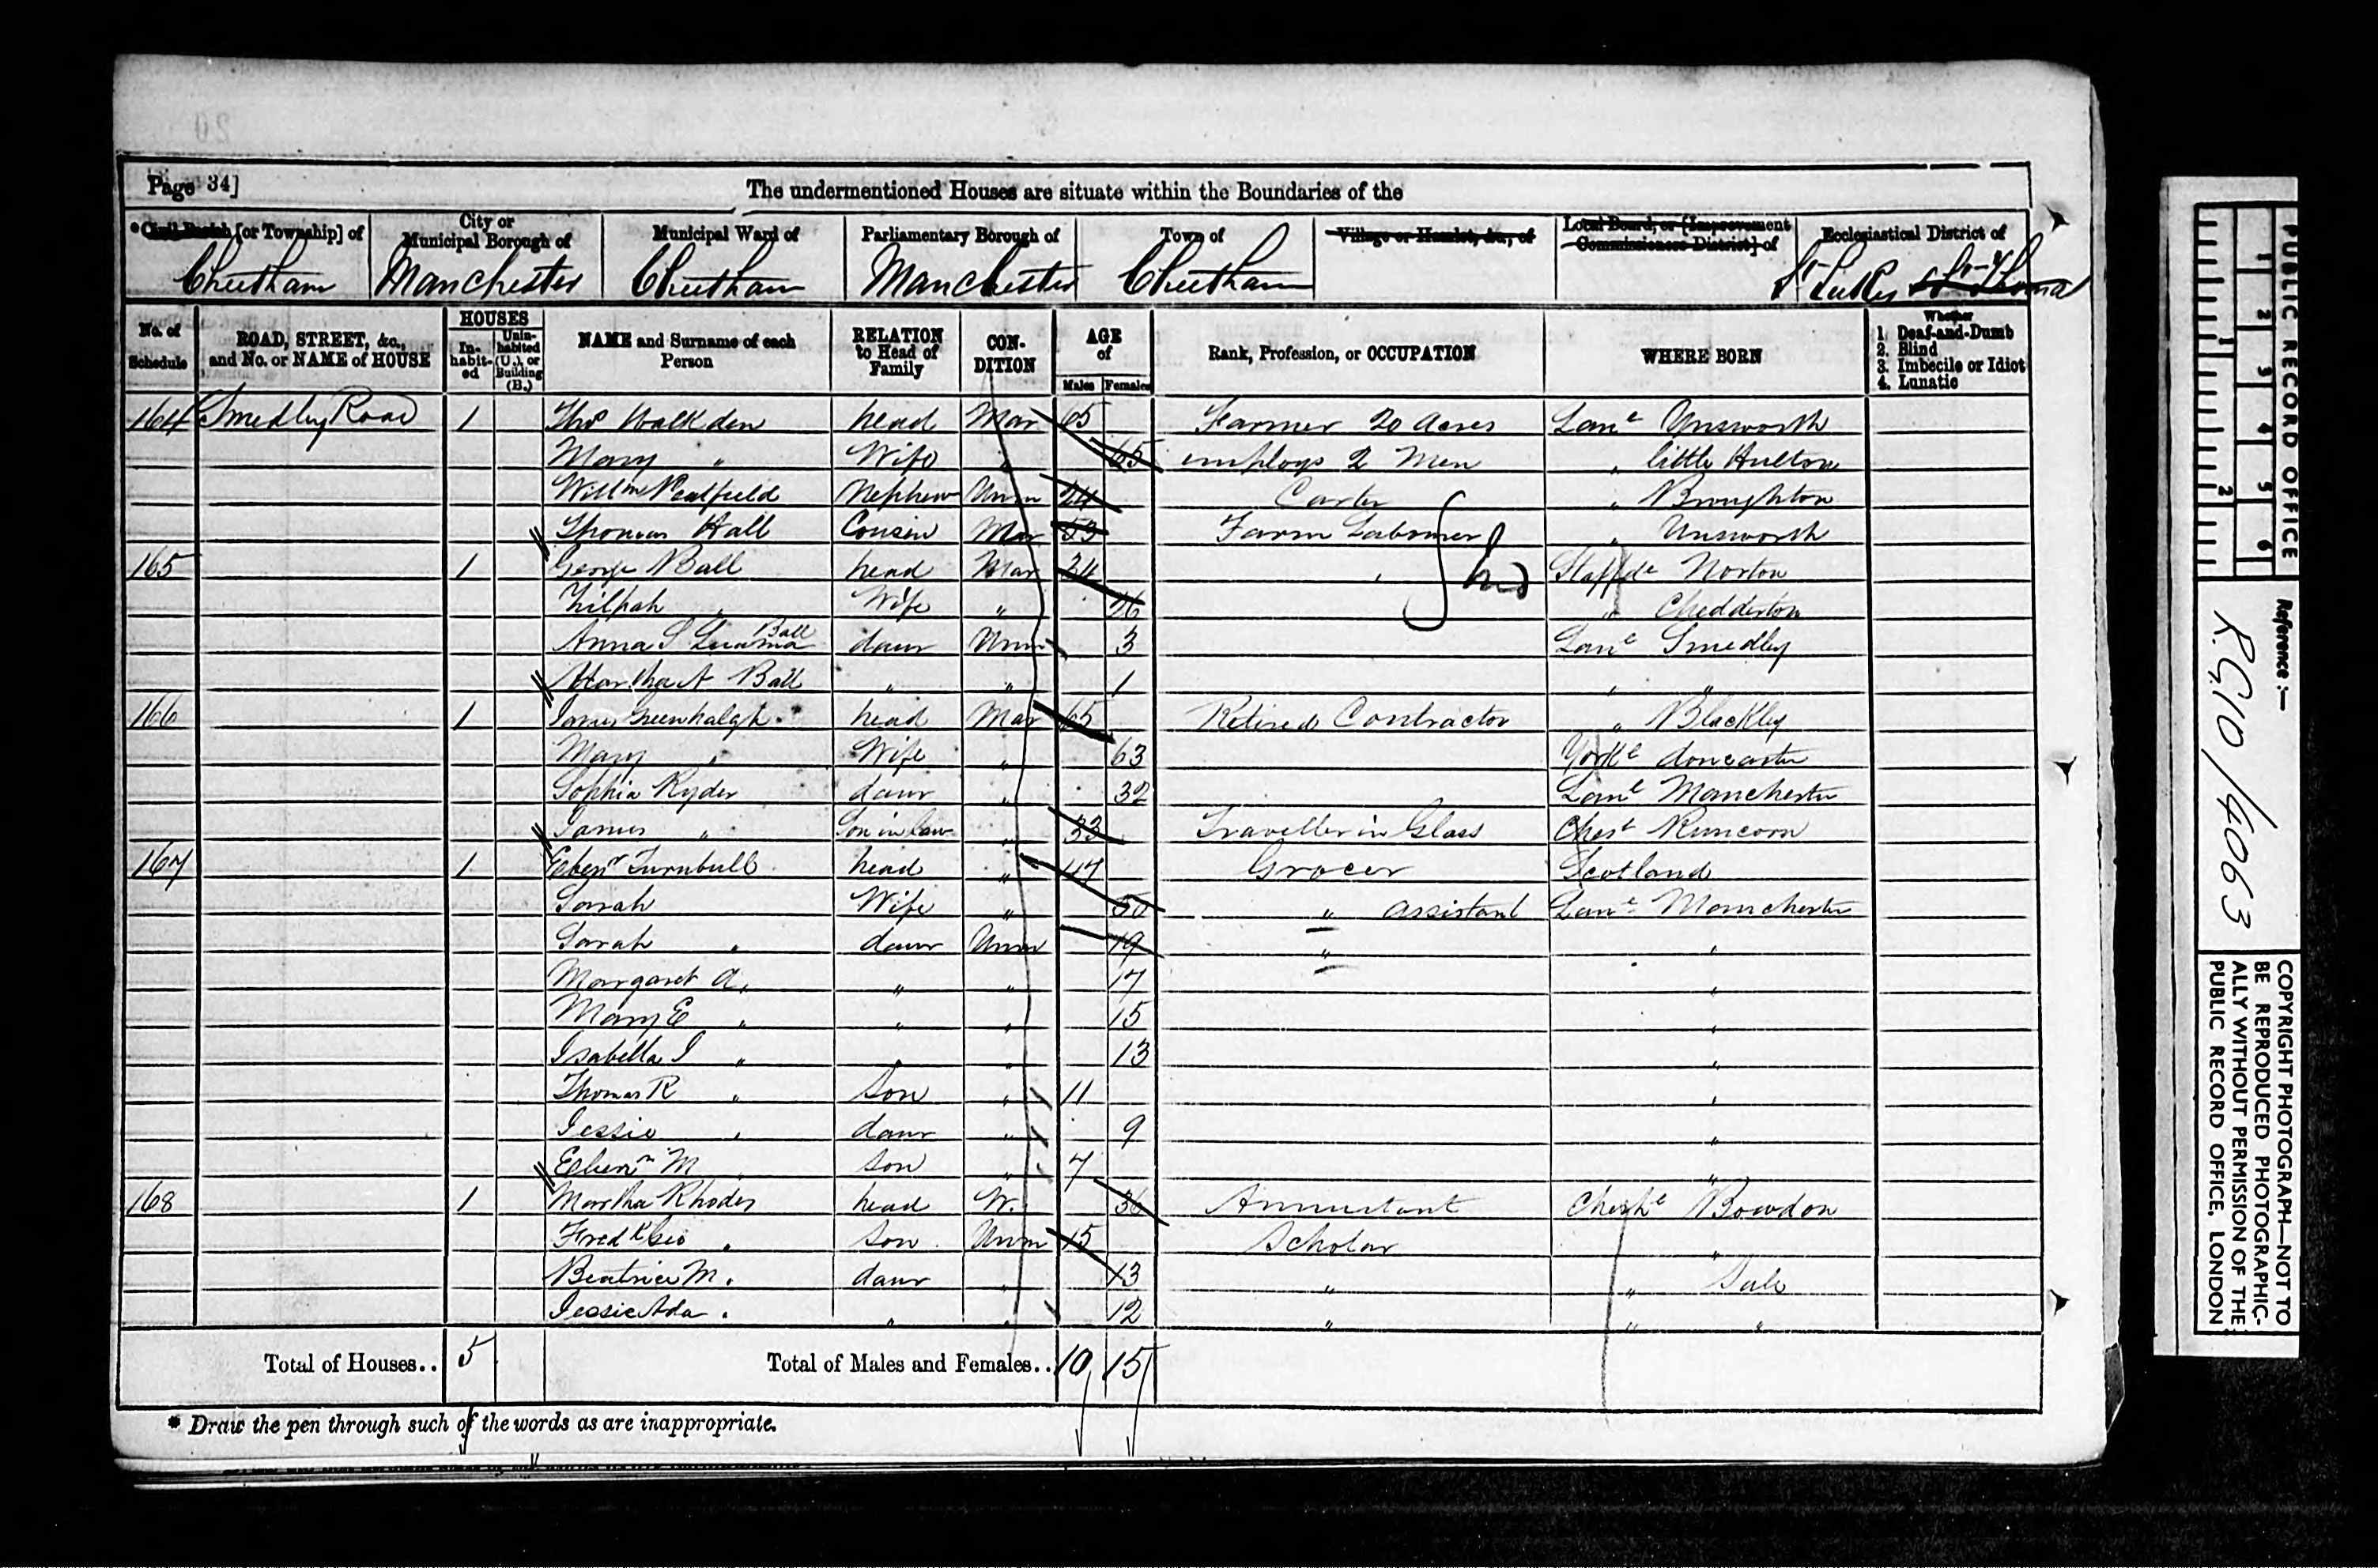 Page 34]
The undermentioned Houses are situate within the Boundaries of the
*Civil Parish [or Township] of
City or Municipal Borough of
Municipal Ward of
Parliamentary Borough of
Town of
Village or Hamlet, &c., of
Local Board, or [Improvement Commissioners District] of
Ecclesiastical District of
Cheetham Manchester Cheetham Manchester Cheetham St Lukes St Thomas
No. of Schedule
ROAD, STREET, &c., and No. or NAME of HOUSE
HOUSES
In-habit-ed
Unin-habited (U.), or Building (B.)
NAME and Surname of each Person
RELATION to Head of Family
CON-DITION
AGE of
Males Females
Rank, Profession, or OCCUPATION
WHERE BORN
Whether
1. Deaf-and-Dumb
2. Blind
3. Imbecile or Idiot
4. Lunatic
164 Smedley Road 1 Thos Walkden head Mar 65 Farmer 20 Acres Lanc Unsworth
Mary " Wife " 65 employs 2 Men " little Hulton
Willm Nephew Unm 24 Carter " Broughton
Thomas Hall Cousin Mar 53 Farm Labourer " Unsworth
165 1 George Ball head Mar 34 " Staffde Norton
Zilpah " Wife " 26 " Chedderton
Anna S Ball daur Unm 3 Lanc Smedley
Martha A Ball " " 1 " "
166 1 James Greenhalgh head Mar 65 Retired Contractor " Blackley
Mary " Wife " 63 Yorke doncaster
Sophia Ryder daur " 32 Lanc Manchester
James " Son in law " 33 Traveller in Glass Ches Runcorn
167 1 Ebenr Turnbull head " 47 Grocer Scotland
Sarah Wife " 50 " assistant Lanc Manchester
Sarah " daur Unm 19 " "
Margaret A " " " 17 "
Mary E " " " 15 "
Isabella J " " " 13 "
Thomas R " Son " 11 "
Jessie " daur " 9 "
Ebenr M " Son " 7 "
168 1 Martha Rhodes head W. 36 Annuitant Cheshe Bowdon
Fredk Geo " Son Unm 15 Scholar "
Beatrice M. daur " 13 " " Sale
Jessie Ada " " " 12 " " "
Total of Houses.. 5 Total of Males and Females.. 10 15
* Draw the pen through such of the words as are inappropriate.
PUBLIC RECORD OFFICE
1 2 3 4 5 6
1 2
Reference :—
R.G.10/4063
COPYRIGHT PHOTOGRAPH—NOT TO BE REPRODUCED PHOTOGRAPHICALLY WITHOUT PERMISSION OF THE PUBLIC RECORD OFFICE, LONDON